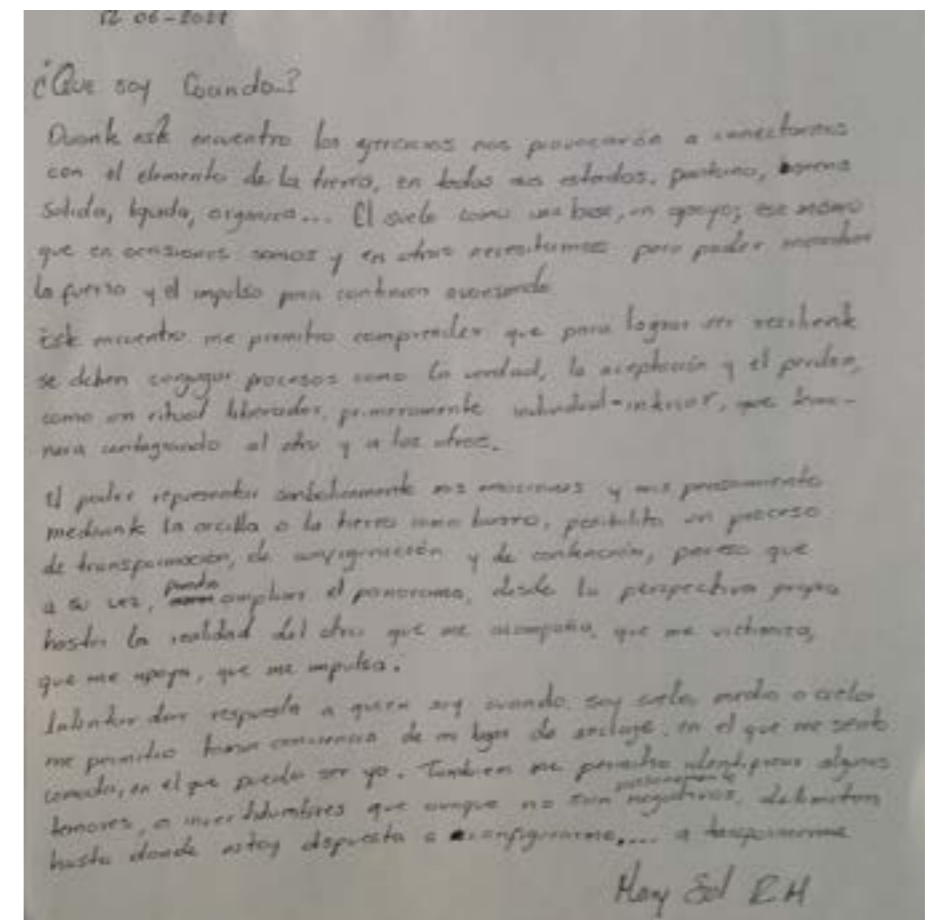 12-06-2021
¿Que soy Cuando..?
Durante este encuentro los ejercicios nos provocarón a conectarnos
con el elemento de la tierra, en todos sus estados, pantano, barena
solida, liquida, organica... El suelo como una base, un apoyo; ese mismo
que en ocasiones somos y en otras necesitamos para poder encontrar
la fuerza y el impulso para continuar avanzando
Este encuentro me permitio comprender que para lograr ser resiliente
se deben conjugar procesos como la verdad, la aceptación y el perdon,
como un ritual liberador, primeramente individual-interior, que
contagiando al otro y a los otros.
El poder representar simbolicamente mis emociones y mis pensamiento
mediante la arcilla o la tierra como barro, posibilito un proceso
de transformación, de configuración y de contención, proceso que
a su vez, pueda ampliar el panorama, desde la perspectiva propia
hasta la realidad del otro que me acompaña, que me victimiza,
que me apoya, que me impulsa.
Intentar dar respuesta a quien soy cuando soy suelo, medio o cielo
me permitio tomar conciencia de mi lugar de anclaje, en el que me siento
comoda, en el que puedo ser yo. Tambien me permitio identificar algunos
temores, o incertidumbres que aunque no son negativos, delimitan
hasta donde estoy dispuesta a configurarme.... a
Mary Sol R.H